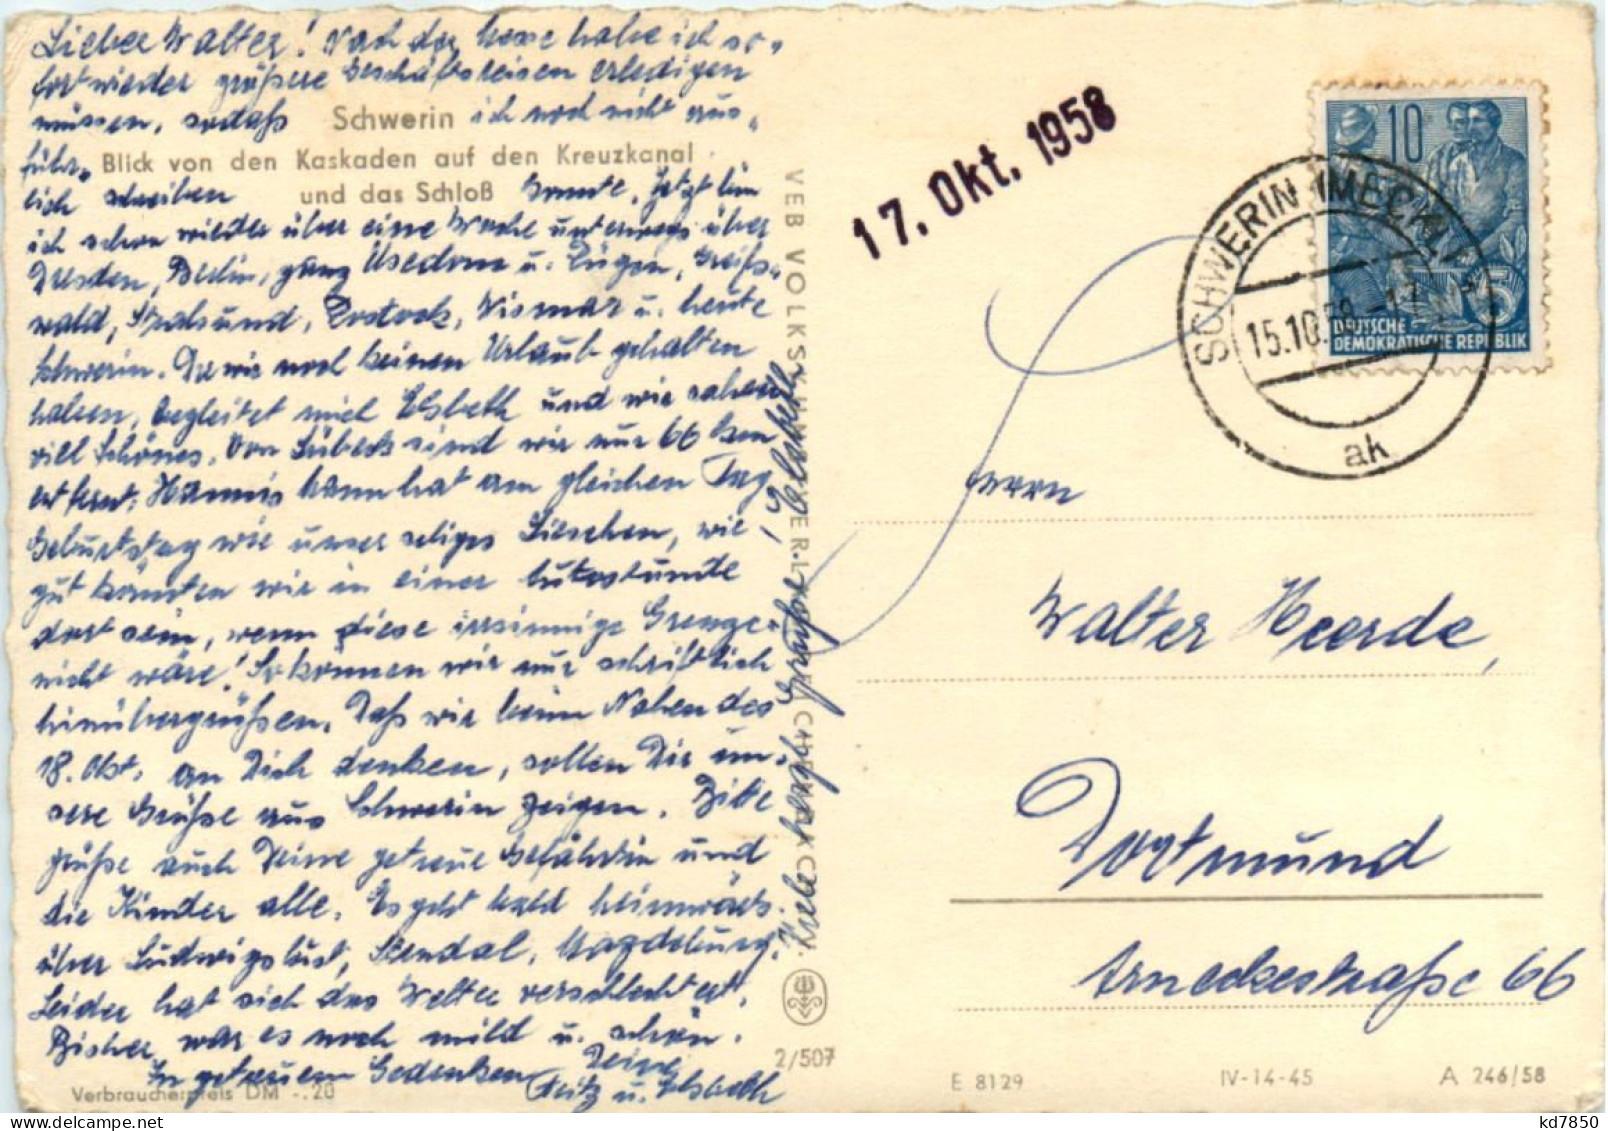 Lieber Walter! Nach der Messe habe ich so-
fort wieder größere Geschäftsreisen erledigen
müssen, sodaß ich noch nicht aus-
führ-
lich schreiben konnte. Jetzt bin
ich schon wieder über eine Woche unterwegs über
Dresden, Berlin, ganz Usedom u. Rügen, Greifs-
wald, Stralsund, Rostock, Wismar u. heute
Schwerin. Da wir noch keinen Urlaub gehalten
haben, begleitet mich Elsbeth und wir sahen
viel Schönes. Von Lübeck sind wir nur 66 km
entfernt. Hannis Mann hat am gleichen Tag
Geburtstag wie unser seliges Lieschen, wie
gut könnten wir in einer Autostunde
dort sein, wenn diese irrsinnige Grenze
nicht wäre! So können wir nur schriftlich
hinübergrüßen. Daß wir beim Nahen des
18. Okt. an Dich denken, sollen Dir un-
sere Grüße aus Schwerin zeigen. Bitte
grüße auch Deine getreue Gefährtin und
die Kinder alle. Es geht bald heimwärts
über Ludwigslust, Stendal, Magdeburg.
Leider hat sich das Wetter verschlechtert.
Bisher war es noch mild u. schön.
In getreuem Gedenken Deine
Fritz u. Elsbeth
Schwerin
Blick von den Kaskaden auf den Kreuzkanal
und das Schloß
Verbraucherpreis DM -.20
Grüße! Elsbeth
VEB VOLKSK
2/507
17. Okt. 1958
10
DEUTSCHE
DEMOKRATISCHE REPUBLIK
SCHWERIN (MECKL)
15.10.58.-17
ak
Herrn
Walter Heerde,
Dortmund
Arneckestraße 66
E 8129
IV-14-45
A 246/58
kd7850